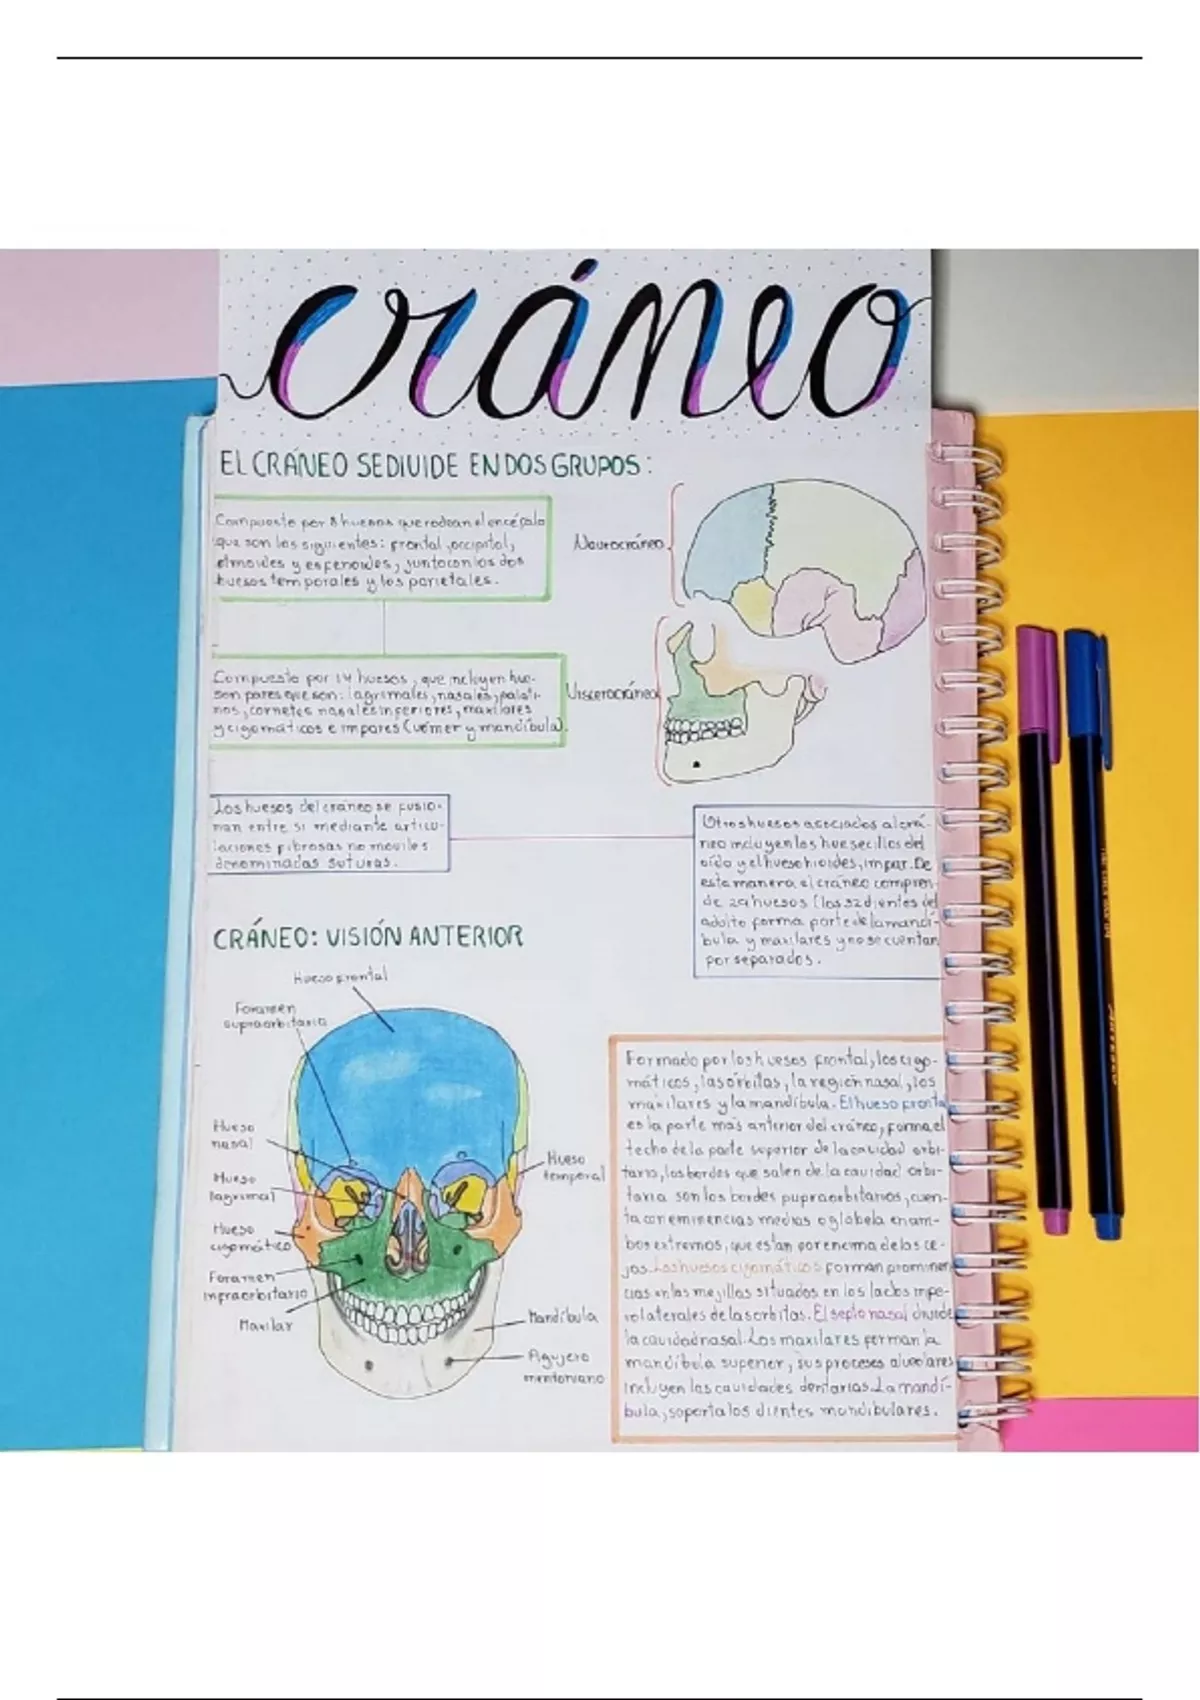 cráneo
EL CRÁNEO SE DIVIDE EN DOS GRUPOS:
Compuesto por 8 huesos que rodean el encéfalo
que son los siguientes: frontal, occipital,
etmoides y esfenoides, junto con los dos
huesos temporales y los parietales.
Neurocráneo
Compuesto por 14 huesos, que incluyen hue-
son pares que son: lagrimales, nasales, palati-
nos, cornetes nasales inferiores, maxilares
y cigomáticos e impares (vómer y mandíbula).
Viscerocráneo
Los huesos del cráneo se fusio-
nan entre si mediante articu-
laciones fibrosas no moviles
denominadas suturas.
Otros huesos asociados al crá-
neo incluyen los huesecillos del
oído y el hueso hioides, impar. De
esta manera el cráneo compren-
de 29 huesos (los 32 dientes del
adulto forma parte de la mandí-
bula y maxilares y no se cuentan
por separados.
CRÁNEO: VISIÓN ANTERIOR
Hueso frontal
Foramen
supraorbitario
Hueso
nasal
Hueso
lagrimal
Hueso
cigomático
Foramen
infraorbitario
Maxilar
Hueso
temporal
Mandíbula
Agujero
mentoniano
Formado por los huesos frontal, los cigo-
máticos, las órbitas, la región nasal, los
maxilares y la mandíbula. El hueso fronta
es la parte más anterior del cráneo, forma el
techo de la parte superior de la cavidad orbi-
taria, los bordes que salen de la cavidad orbi-
taria son los bordes pupraorbitarios, cuen-
ta con eminencias medias o glabela en am-
bos extremos, que estan por encima de las ce-
jas. Los huesos cigomáticos forman prominen
cias en las mejillas situados en los lados infe-
rolaterales de las orbitas. El septo nasal divide
la cavidad nasal. Los maxilares forman la
mandíbula superior, sus procesos alveolares
incluyen las cavidades dentarias. La mandí-
bula, soporta los dientes mandibulares.